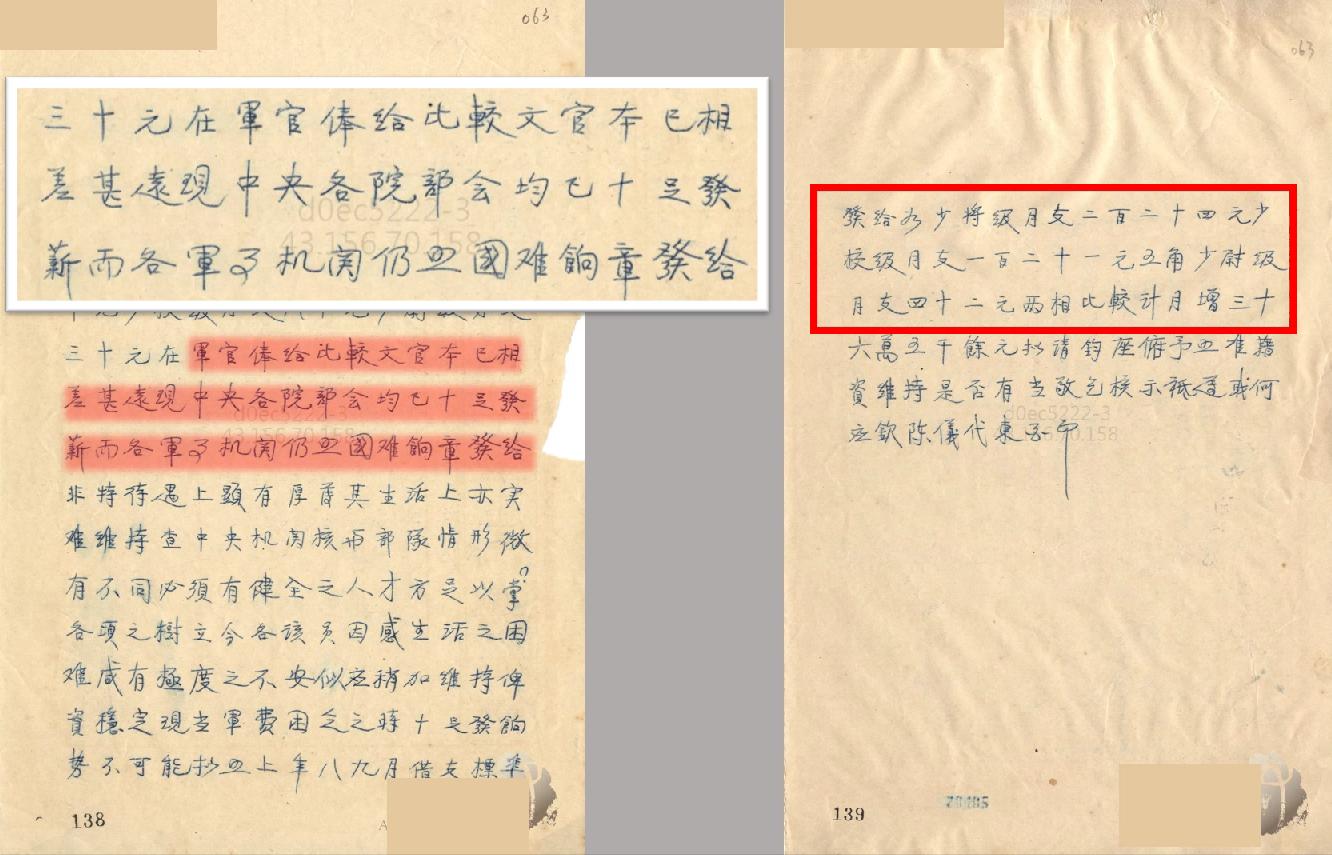 063
三十元在軍官俸給比較文官本已相
差甚遠現中央各院部会均已十足發
薪而各軍事机関仍照國难餉章發給
三十元在軍官俸給比較文官本已相
差甚遠現中央各院部会均已十足發
薪而各軍事机関仍照國难餉章發給
非特待遇上顕有厚薄其生活上亦实
难維持查中央机関核与部隊情形微
有不同必須有健全之人才方足以掌
各項之樹立今各該員因感生活之困
难咸有極度之不安似应稍加維持俾
資穩定現当軍費困之時十足發餉
势不可能拟照上年八九月借支標準
138
063
發給如少将级月支二百二十四元少
校级月支一百二十一元五角少尉级
月支四十二元两相比較計月增三十
六萬五千餘元拟请鈞座俯予照准藉
資維持是否有当敬乞核示祗遵戢何
应欽陈儀代東印
139
d0ec5222-3
43.156.70.158